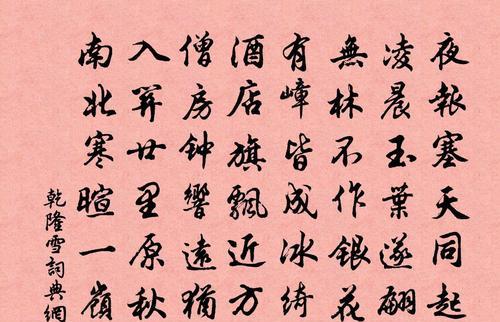 夜報塞天同起
凌晨玉葉遂翩
無林不作銀花
有嶂皆成冰綺
酒店旗飄近方
僧房钟響遠猶
入廿里原秋
南北寒暄一嶺
乾隆雪詞典網